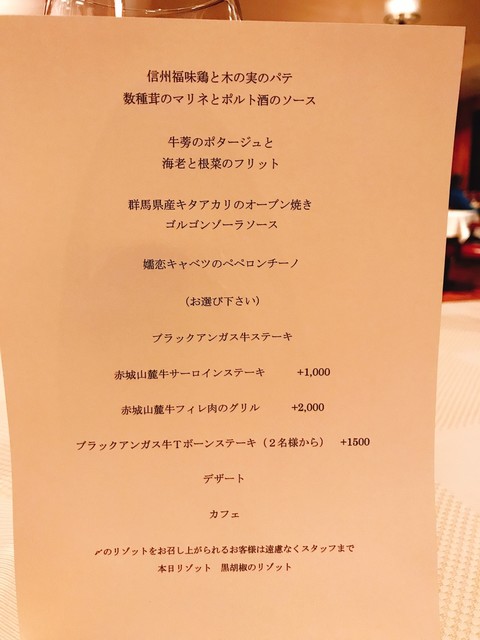 信州福味鶏と木の実のパテ
数種茸のマリネとポルト酒のソース
牛蒡のポタージュと
海老と根菜のフリット
群馬県産キタアカリのオーブン焼き
ゴルゴンゾーラソース
嬬恋キャベツのペペロンチーノ
(お選び下さい)
ブラックアンガス牛ステーキ
赤城山麓牛サーロインステーキ +1,000
赤城山麓牛フィレ肉のグリル +2,000
ブラックアンガス牛Tボーンステーキ(2名様から) +1500
デザート
カフェ
〆のリゾットをお召し上がられるお客様は遠慮なくスタッフまで
本日リゾット 黒胡椒のリゾット